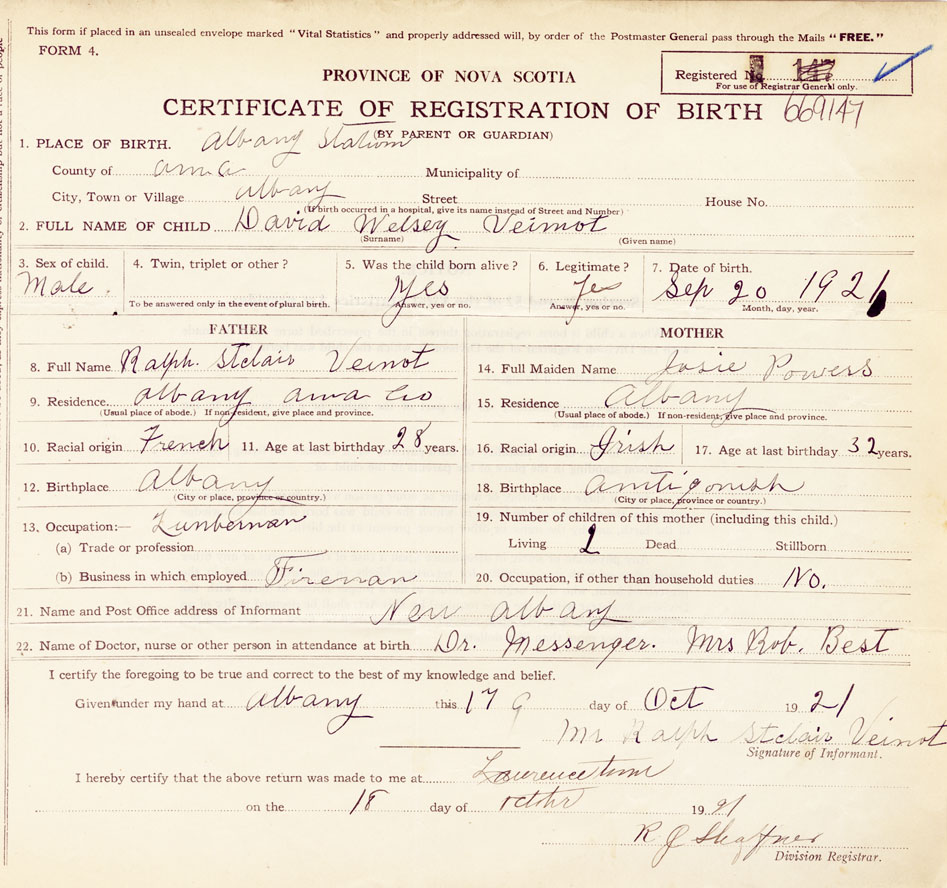 This form if placed in an unsealed envelope marked "Vital Statistics" and properly addressed will, by order of the Postmaster General pass through the Mails "FREE."
FORM 4.
PROVINCE OF NOVA SCOTIA
Registered No. 147
For use of Registrar General only.
CERTIFICATE OF REGISTRATION OF BIRTH 669147
(BY PARENT OR GUARDIAN)
1. PLACE OF BIRTH. Albany Station
County of Anna Municipality of
City, Town or Village Albany Street House No.
(If birth occurred in a hospital, give its name instead of Street and Number)
2. FULL NAME OF CHILD David Welsey Veinot
(Surname) (Given name)
3. Sex of child. 4. Twin, triplet or other? 5. Was the child born alive? 6. Legitimate? 7. Date of birth.
Male. Yes Yes Sep 20 1921
To be answered only in the event of plural birth. Answer, yes or no. Answer, yes or no. Month, day, year.
FATHER MOTHER
8. Full Name Ralph Stclair Veinot 14. Full Maiden Name Josie Powers
9. Residence Albany Anna Co 15. Residence Albany
(Usual place of abode.) If non-resident, give place and province. (Usual place of abode.) If non-resident, give place and province.
10. Racial origin French 11. Age at last birthday 28 years. 16. Racial origin Irish 17. Age at last birthday 32 years.
12. Birthplace Albany 18. Birthplace Antigonish
(City or place, province or country.) (City or place, province or country.)
13. Occupation:— Lunberman 19. Number of children of this mother (including this child.)
(a) Trade or profession Living 2 Dead Stillborn
(b) Business in which employed Fireman 20. Occupation, if other than household duties No.
21. Name and Post Office address of Informant New Albany
22. Name of Doctor, nurse or other person in attendance at birth Dr. Messenger. Mrs Rob. Best
I certify the foregoing to be true and correct to the best of my knowledge and belief.
Given under my hand at Albany this 17 day of Oct 1921
Mr Ralph Stclair Veinot
Signature of Informant.
I hereby certify that the above return was made to me at Lawrencetown
on the 18 day of October 1921
R J Shaffner
Division Registrar.